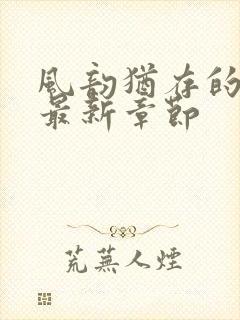 風韵猶存的
最新章節
荒蕪人煙